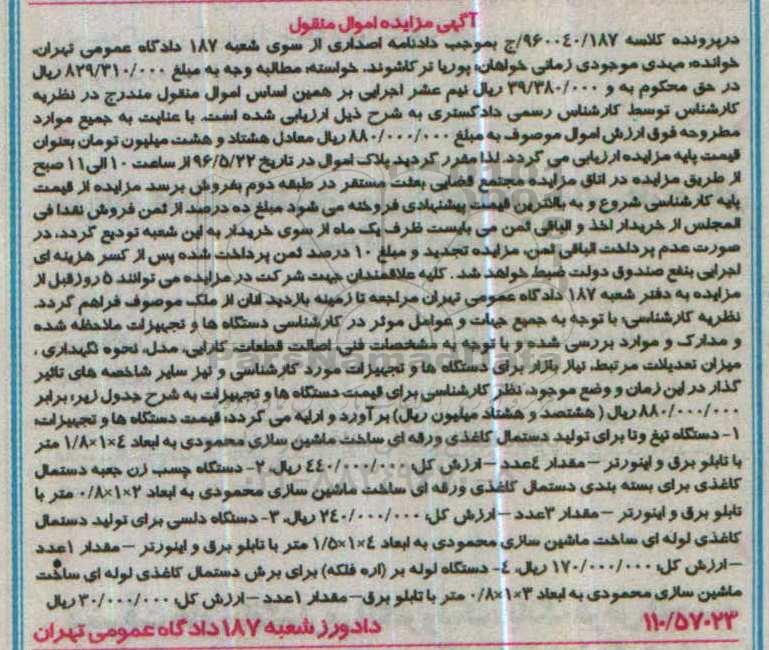 آگهی مزایده اموال منقول
درپرونده کلاسه ۹۶۰۰۴۰/۱۸۷/ج بموجب دادنامه اصداری از سوی شعبه ۱۸۷ دادگاه عمومی تهران،
خوانده: مهدی موجودی زمانی خواهان: پوریا ترکاشوند. خواسته: مطالبه وجه به مبلغ ۸۲۹/۳۱۰/۰۰۰ ریال
در حق محکوم به و ۳۹/۳۸۰/۰۰۰ ریال نیم عشر اجرایی بر همین اساس اموال منقول مندرج در نظریه
کارشناس توسط کارشناس رسمی دادگستری به شرح ذیل ارزیابی شده است. با عنایت به جمیع موارد
مطروحه فوق ارزش اموال موصوف به مبلغ ۸۸۰/۰۰۰/۰۰۰ ریال معادل هشتاد و هشت میلیون تومان بعنوان
قیمت پایه مزایده ارزیابی می گردد. لذا مقرر گردید پلاک اموال در تاریخ ۹۶/۵/۲۲ از ساعت ۱۰ الی ۱۱ صبح
از طریق مزایده در اتاق مزایده مجتمع قضایی بعثت مستقر در طبقه دوم بفروش برسد مزایده از قیمت
پایه کارشناسی شروع و به بالاترین قیمت پیشنهادی فروخته می شود مبلغ ده درصد از ثمن فروش نقدا فی
المجلس از خریدار اخذ و الباقی ثمن می بایست ظرف یک ماه از سوی خریدار به این شعبه تودیع گردد، در
صورت عدم پرداخت الباقی ثمن، مزایده تجدید و مبلغ ۱۰ درصد ثمن پرداخت شده پس از کسر هزینه ای
اجرایی بنفع صندوق دولت ضبط خواهد شد. کلیه علاقمندان جهت شرکت در مزایده می توانند ۵ روز قبل از
مزایده به دفتر شعبه ۱۸۷ دادگاه عمومی تهران مراجعه تا زمینه بازدید آنان از ملک موصوف فراهم گردد.
نظریه کارشناسی: با توجه به جمیع جهات و عوامل موثر در کارشناسی دستگاه ها و تجهیزات ملاحظه شده
و مدارک و موارد بررسی شده و با توجه به مشخصات فنی، اصالت قطعات، کارایی، مدل، نحوه نگهداری،
میزان تعدیلات مرتبط، نیاز بازار برای دستگاه ها و تجهیزات مورد کارشناسی و نیز سایر شاخصه های تاثیر
گذار در این زمان و وضع موجود، نظر کارشناسی برای قیمت دستگاه ها و تجهیزات به شرح جدول زیر، برابر
۸۸۰/۰۰۰/۰۰۰ ریال (هشتصد و هشتاد میلیون ریال) برآورد و ارایه می گردد: قیمت دستگاه ها و تجهیزات:
۱- دستگاه تیغ وتا برای تولید دستمال کاغذی ورقه ای ساخت ماشین سازی محمودی به ابعاد ۴×۱×۱/۸ متر
با تابلو برق و اینورتر – مقدار ۴عدد – ارزش کل: ۴۴۰/۰۰۰/۰۰۰ ریال، ۲- دستگاه چسب زن جعبه دستمال
کاغذی برای بسته بندی دستمال کاغذی ورقه ای ساخت ماشین سازی محمودی به ابعاد ۲×۱×۰/۸ متر با
تابلو برق و اینورتر – مقدار ۳عدد – ارزش کل: ۲۴۰/۰۰۰/۰۰۰ ریال، ۳- دستگاه دلسی برای تولید دستمال
کاغذی لوله ای ساخت ماشین سازی محمودی به ابعاد ۴×۱×۱/۵ متر با تابلو برق و اینورتر – مقدار ۱عدد
– ارزش کل: ۱۷۰/۰۰۰/۰۰۰ ریال، ۴- دستگاه لوله بر (اره فلکه) برای برش دستمال کاغذی لوله ای ساخت
ماشین سازی محمودی به ابعاد ۳×۱×۰/۸ متر با تابلو برق – مقدار ۱عدد – ارزش کل: ۳۰/۰۰۰/۰۰۰ ریال
۱۱۰/۵۷۰۲۳ دادورز شعبه ۱۸۷ دادگاه عمومی تهران
ParsNamadData